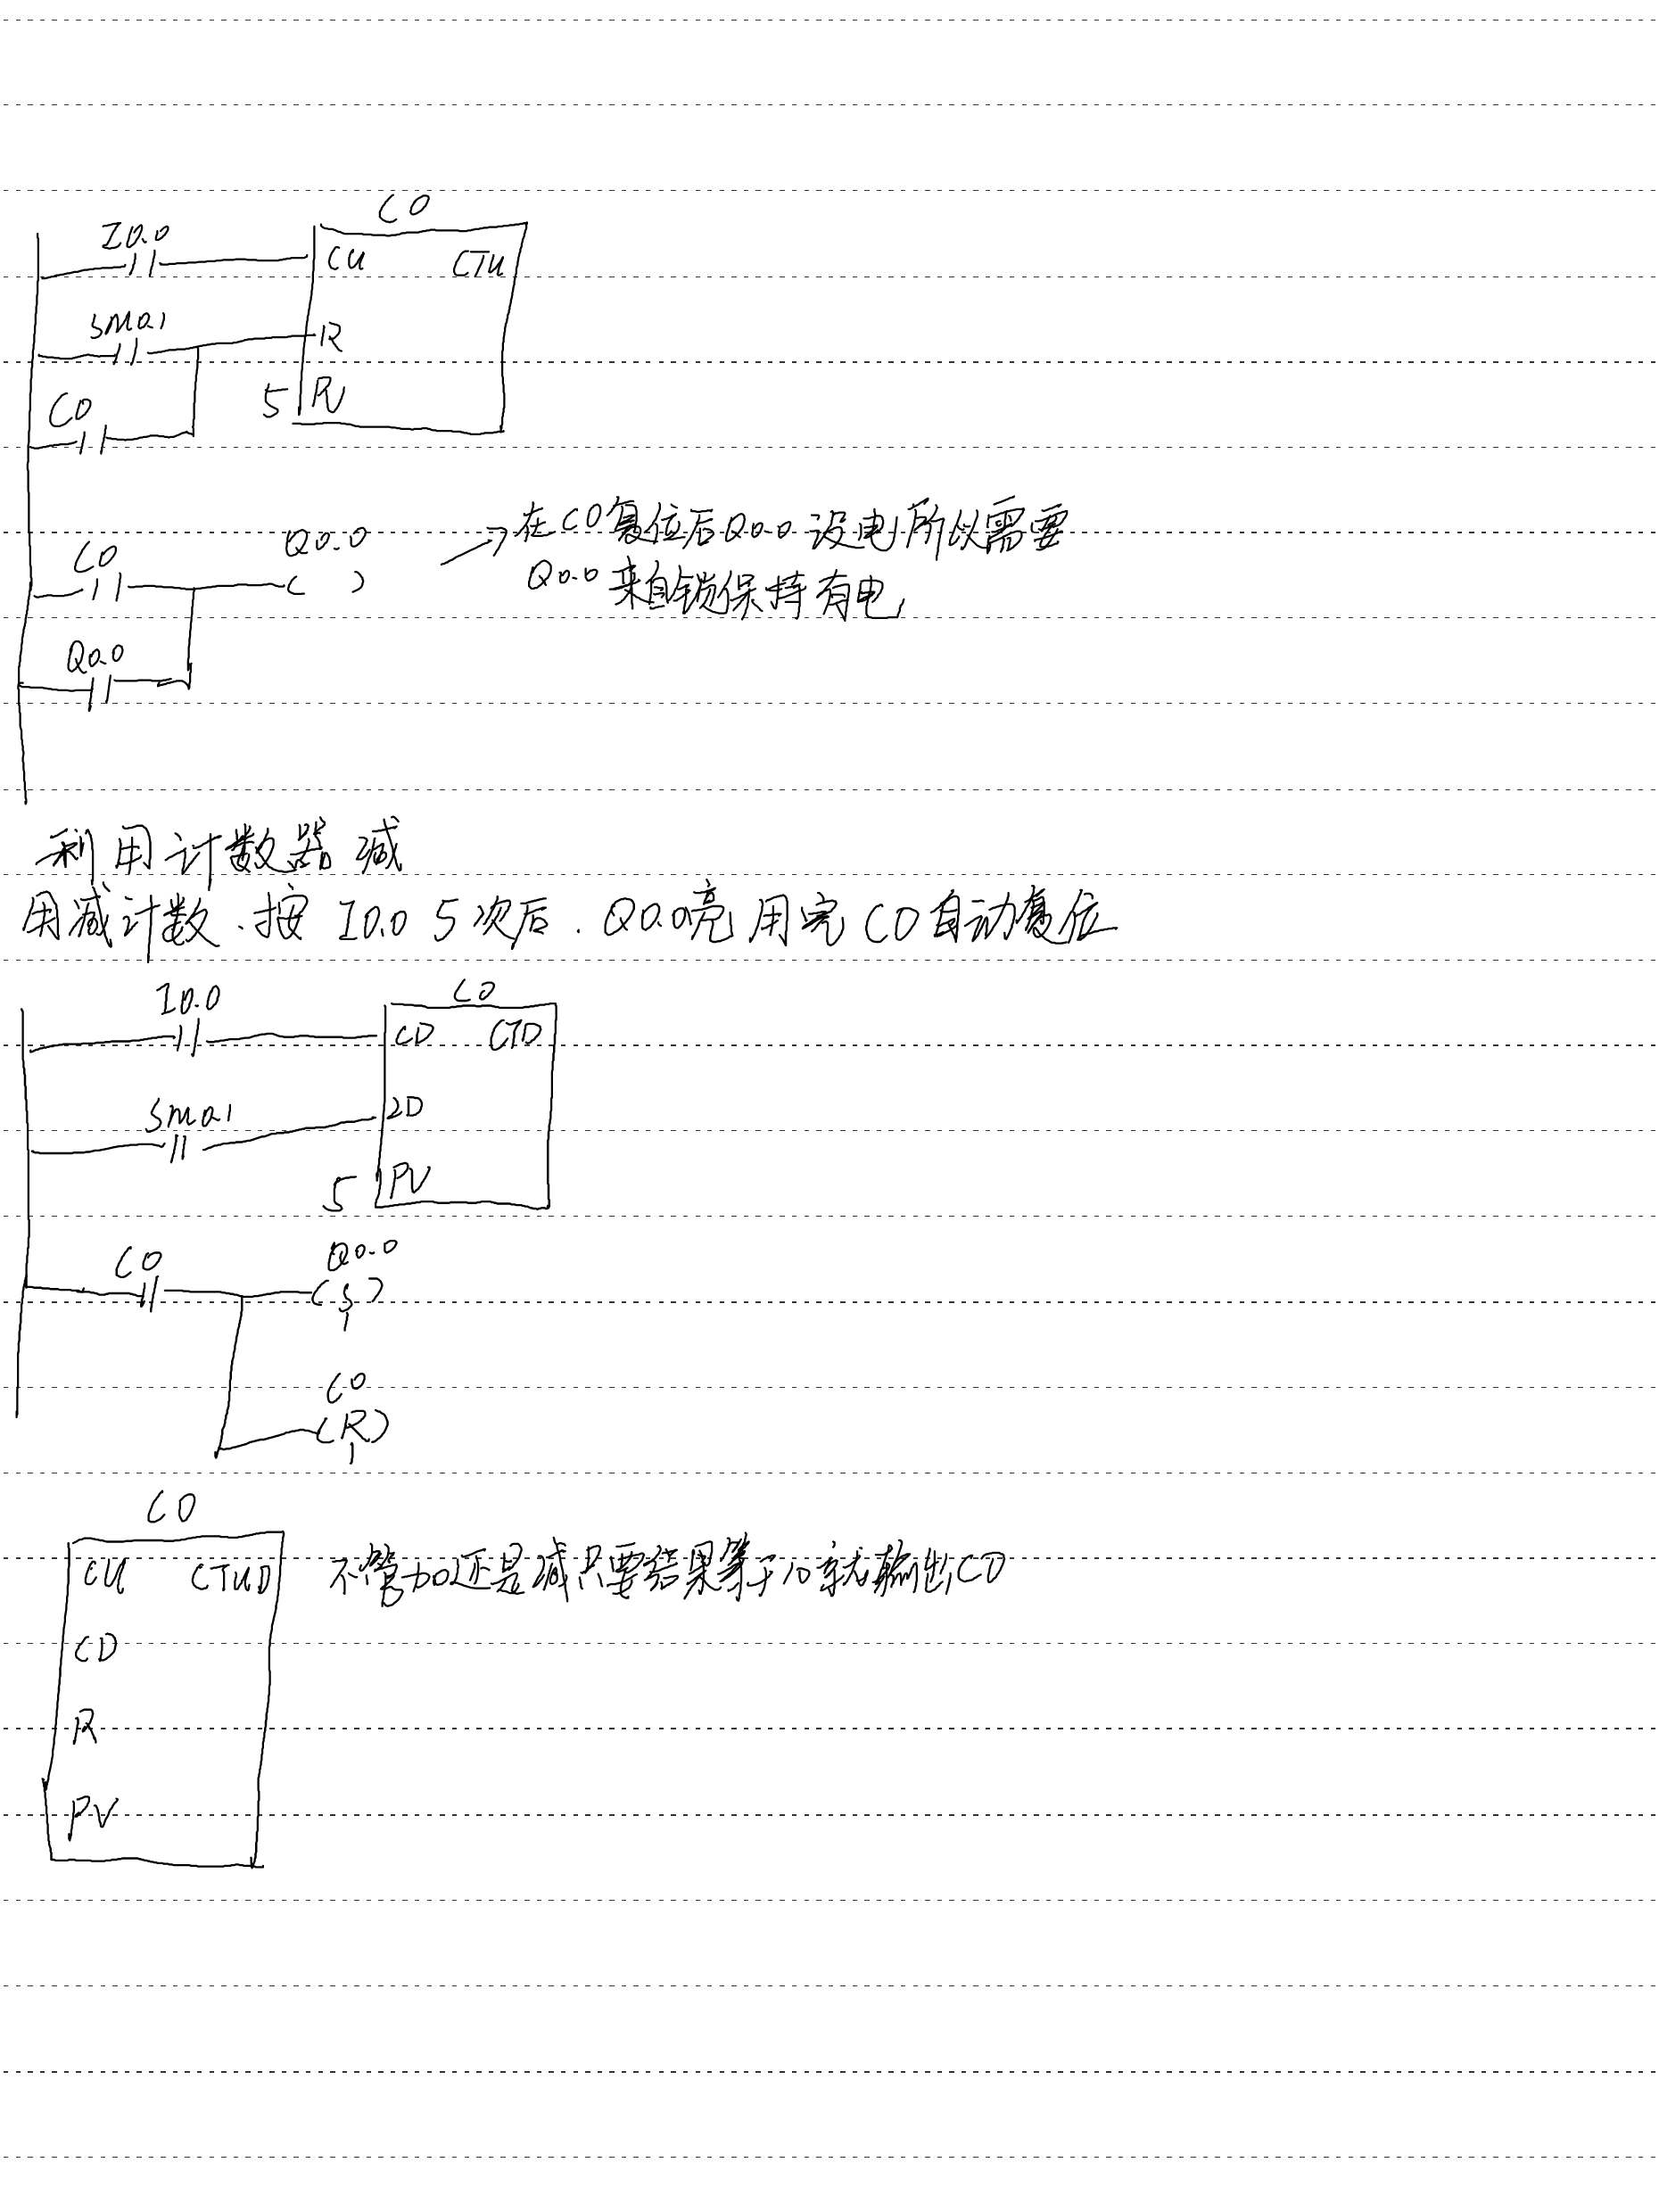 C0
I0.0
CU CTU
SM0.1
R
C0
5 PV
在C0复位后Q0.0设电所以需要
Q0.0来自锁保持有电
C0 Q0.0
( )
Q0.0
利用计数器减
用减计数、按I0.0 5次后.Q0.0亮用完C0自动复位
C0
I0.0
CD CTD
SM0.1
LD
5 PV
C0 Q0.0
(S)
1
C0
(R)
1
C0
CU CTUD 不管加还是减只要结果等于10就输出C0
CD
R
PV